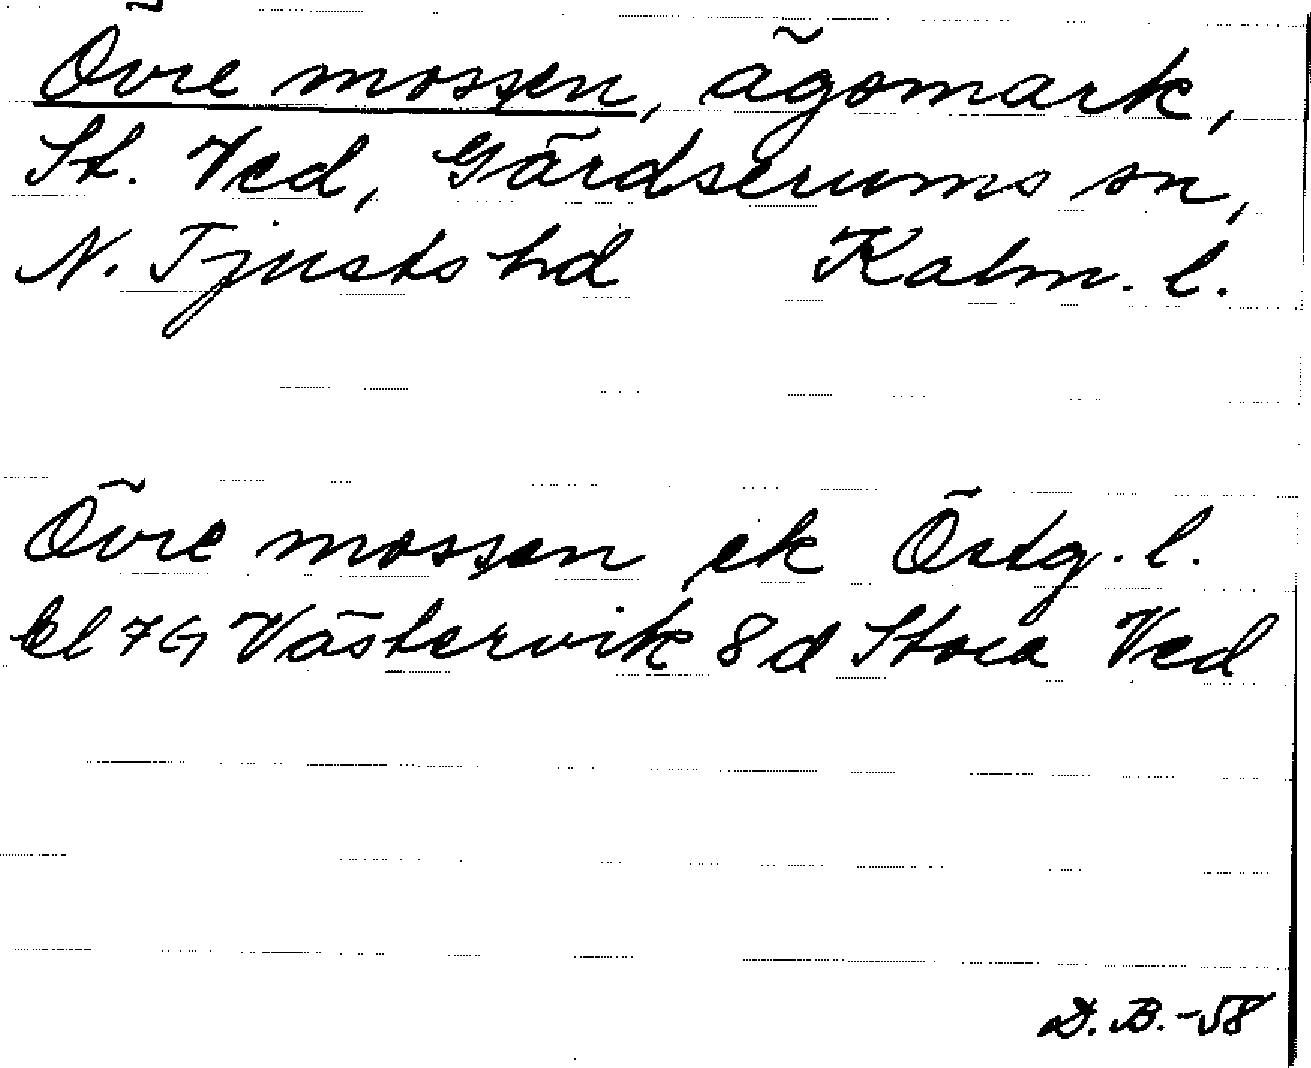 Övre mossen, ägomark,
St. Ved, Gärdserums sn,
N. Tjusts hd Kalm. l.
Övre mossen ek Östg. l.
bl 7G Västervik 8d Stora Ved
D. B. -58